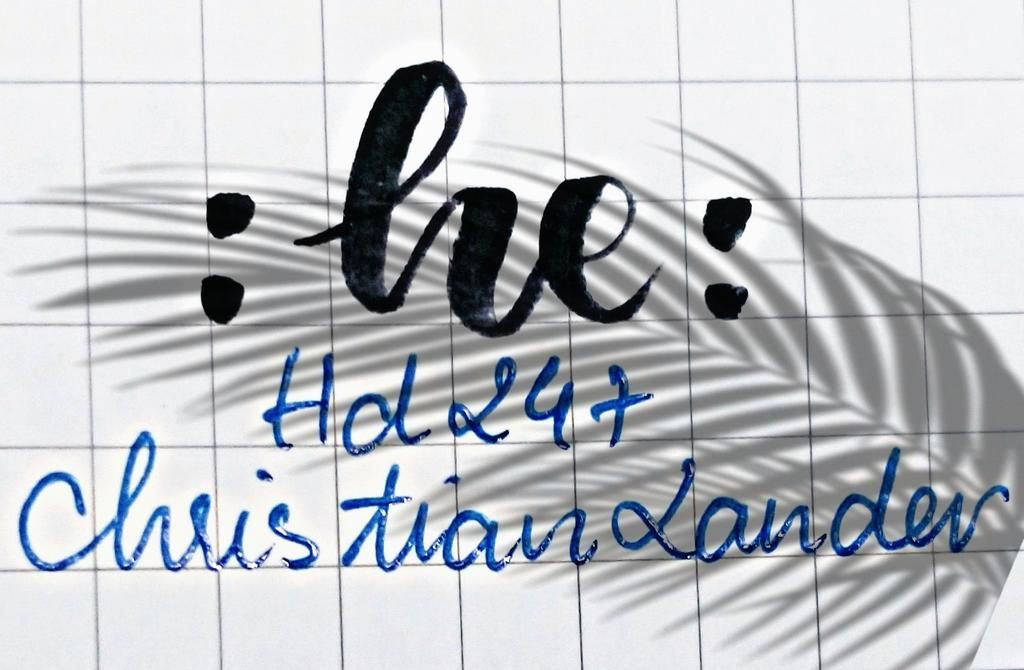 :he:
Hd 247
Christian Lander